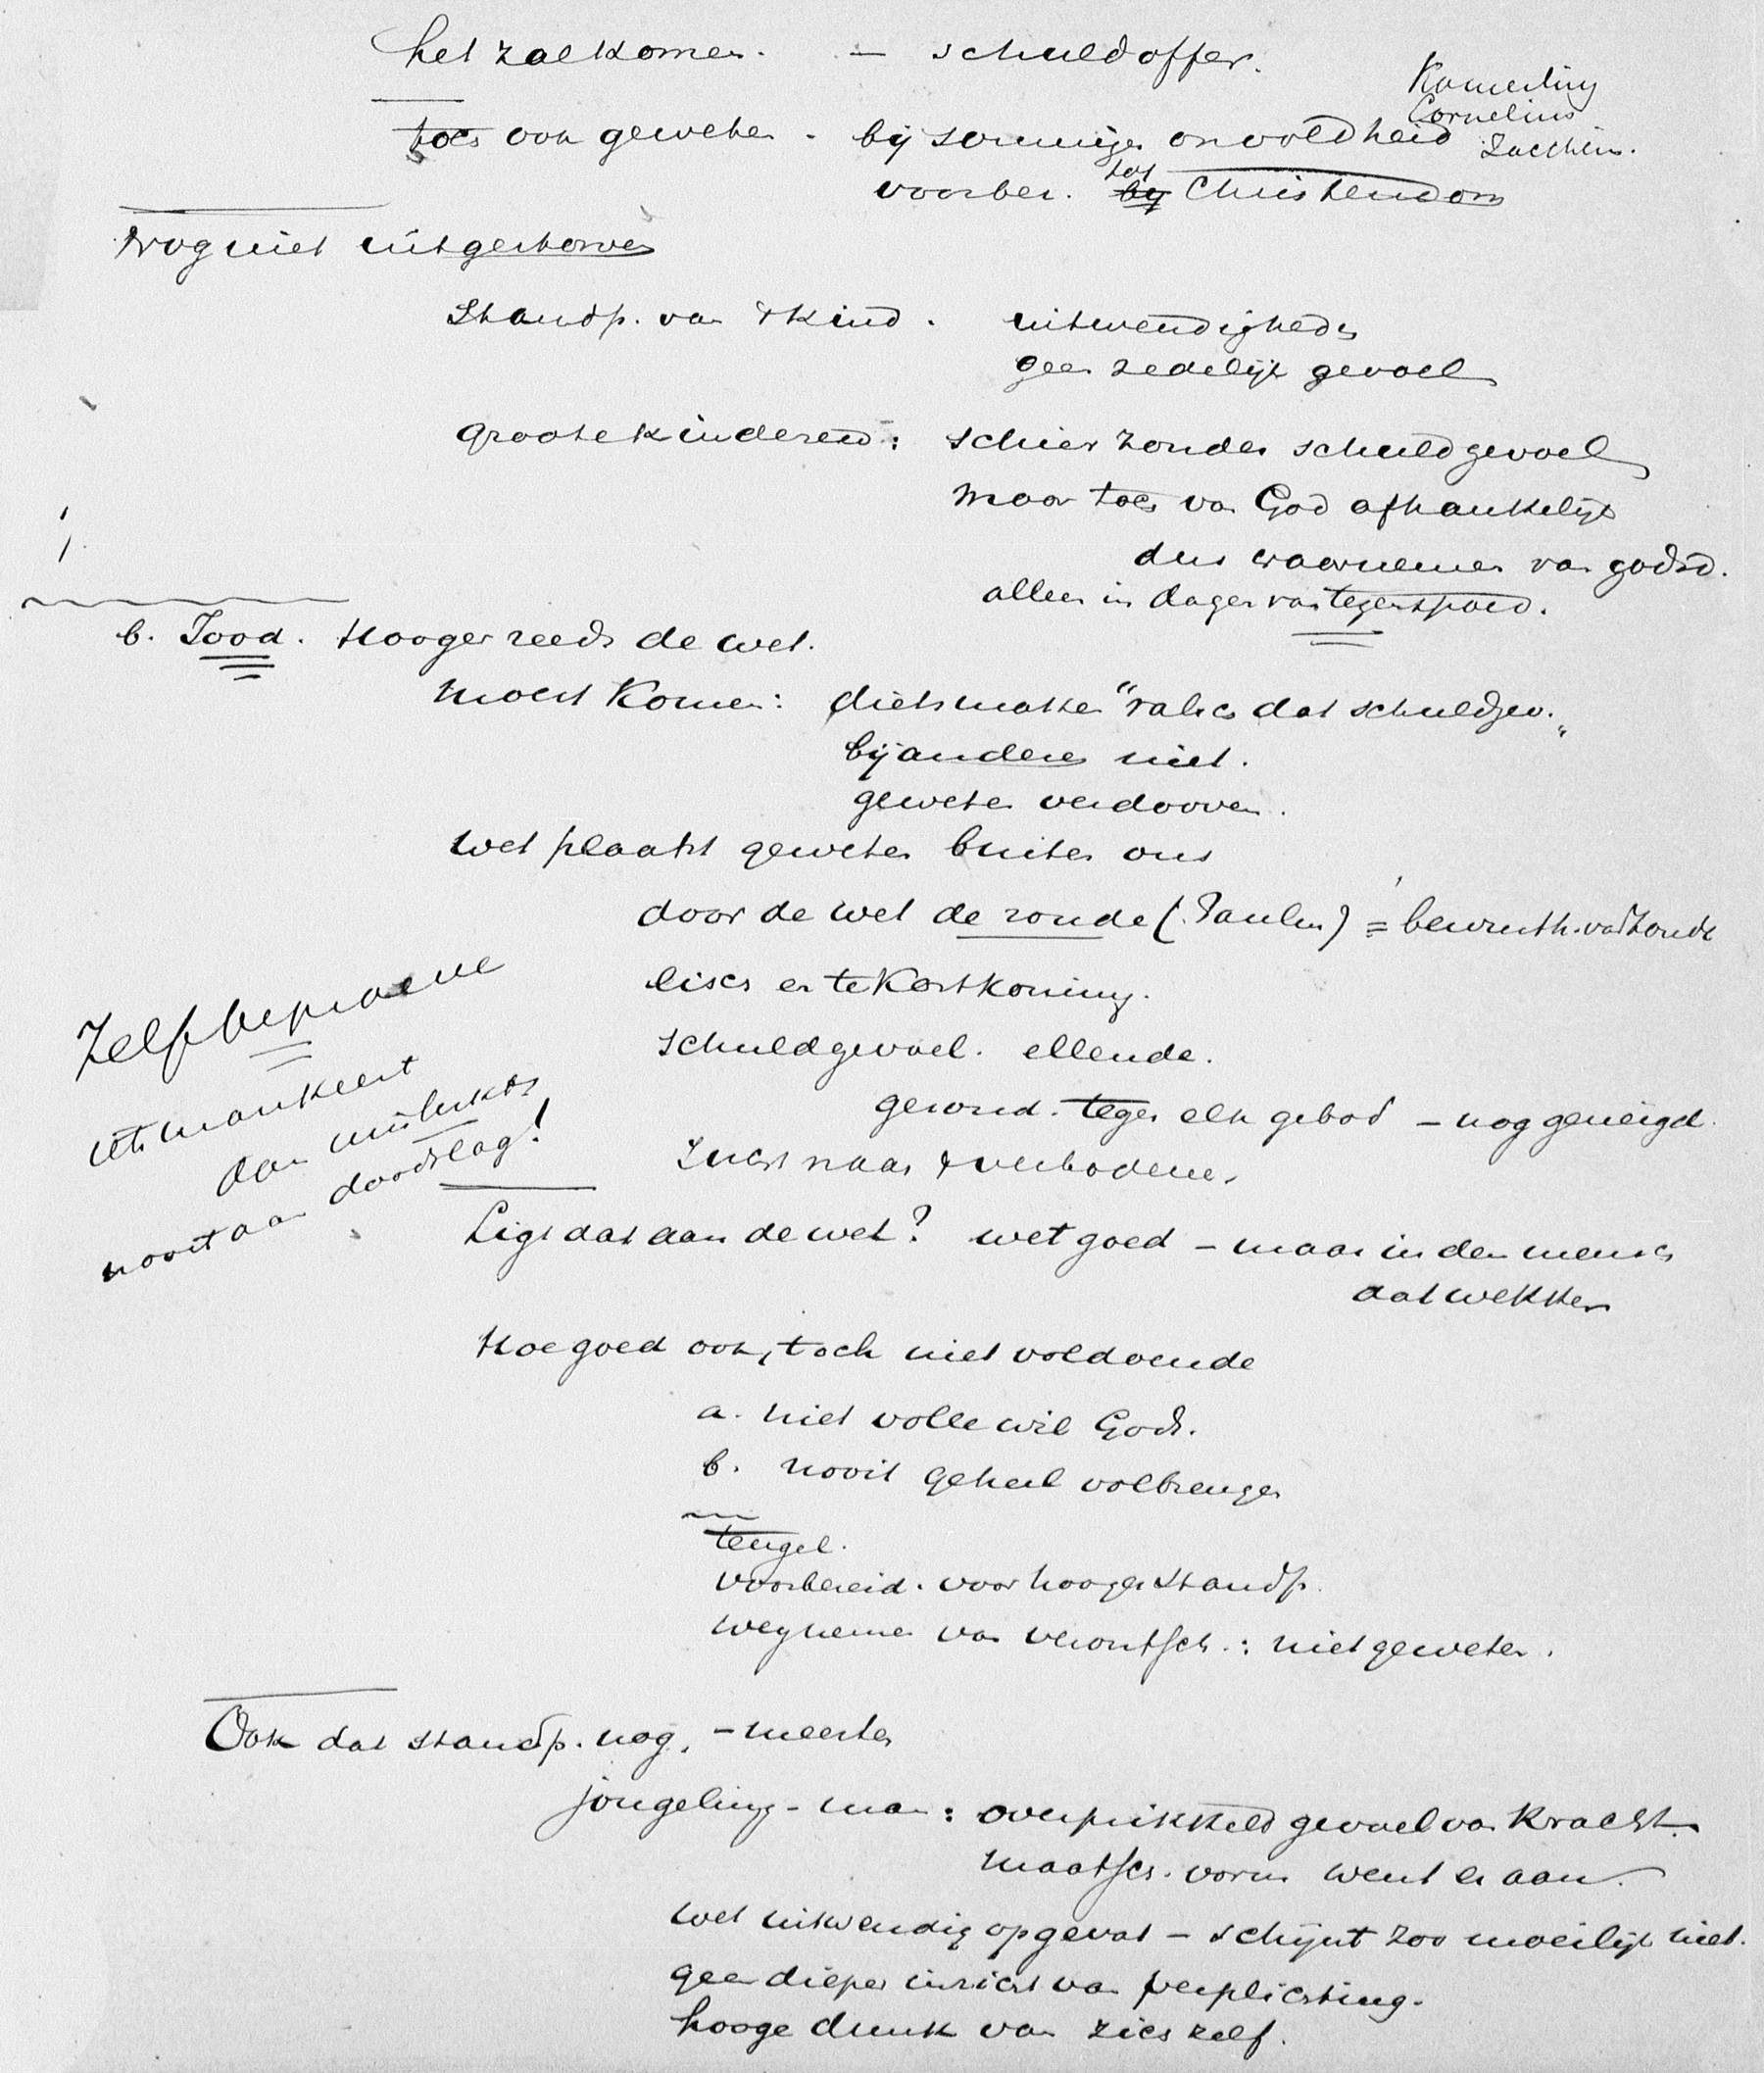 het zal komen. — schuldoffer.
Kamerling
Cornelius
Zacheüs.
toch ook geweten - bij sommigen onvoldheid
voorber. tot Christendom
Nog niet uitgestorven
Standp. van 't kind. uitwendigheden
geen zedelijk gevoel
Groote kinderen: schier zonder schuldgevoel
maar toch van God afhankelijk
dus waarnemen van godsd.
alleen in dagen van tegenspoed.
b. Jood. Hooger reeds de wet.
moest komen: diets maken "valsch dat schuldgev."
bij anderen niet.
geweten verdooven.
wet plaatst geweten buiten ons
door de wet de zonde (Paulus) = bewusth. van zonde
eisch en tekortkoming.
schuldgevoel. ellende.
gezond. tegen elk gebod - nog geneigd.
Zucht naar 't verbodene.
Zelfbeproeve
iets mankeert
aan
nooit aan doodslag!
Ligt dat aan de wet? wet goed - maar in den mensch
dat wekken
Hoe goed ook, toch niet voldoende
a. niet volle wil Gods.
b. nooit geheel volbrengen
teugel.
voorbereid. voor hooger standp.
wegnemen van verontsch.: niet geweten.
Ook dat standp. nog, - meesten
jongeling - man: overprikkeld gevoel van kracht.
maatsch. vorm went er aan.
wet uitwendig opgevat - schijnt zoo moeilijk niet.
geen dieper inzicht van verplichting.
hooge dunk van zich zelf.